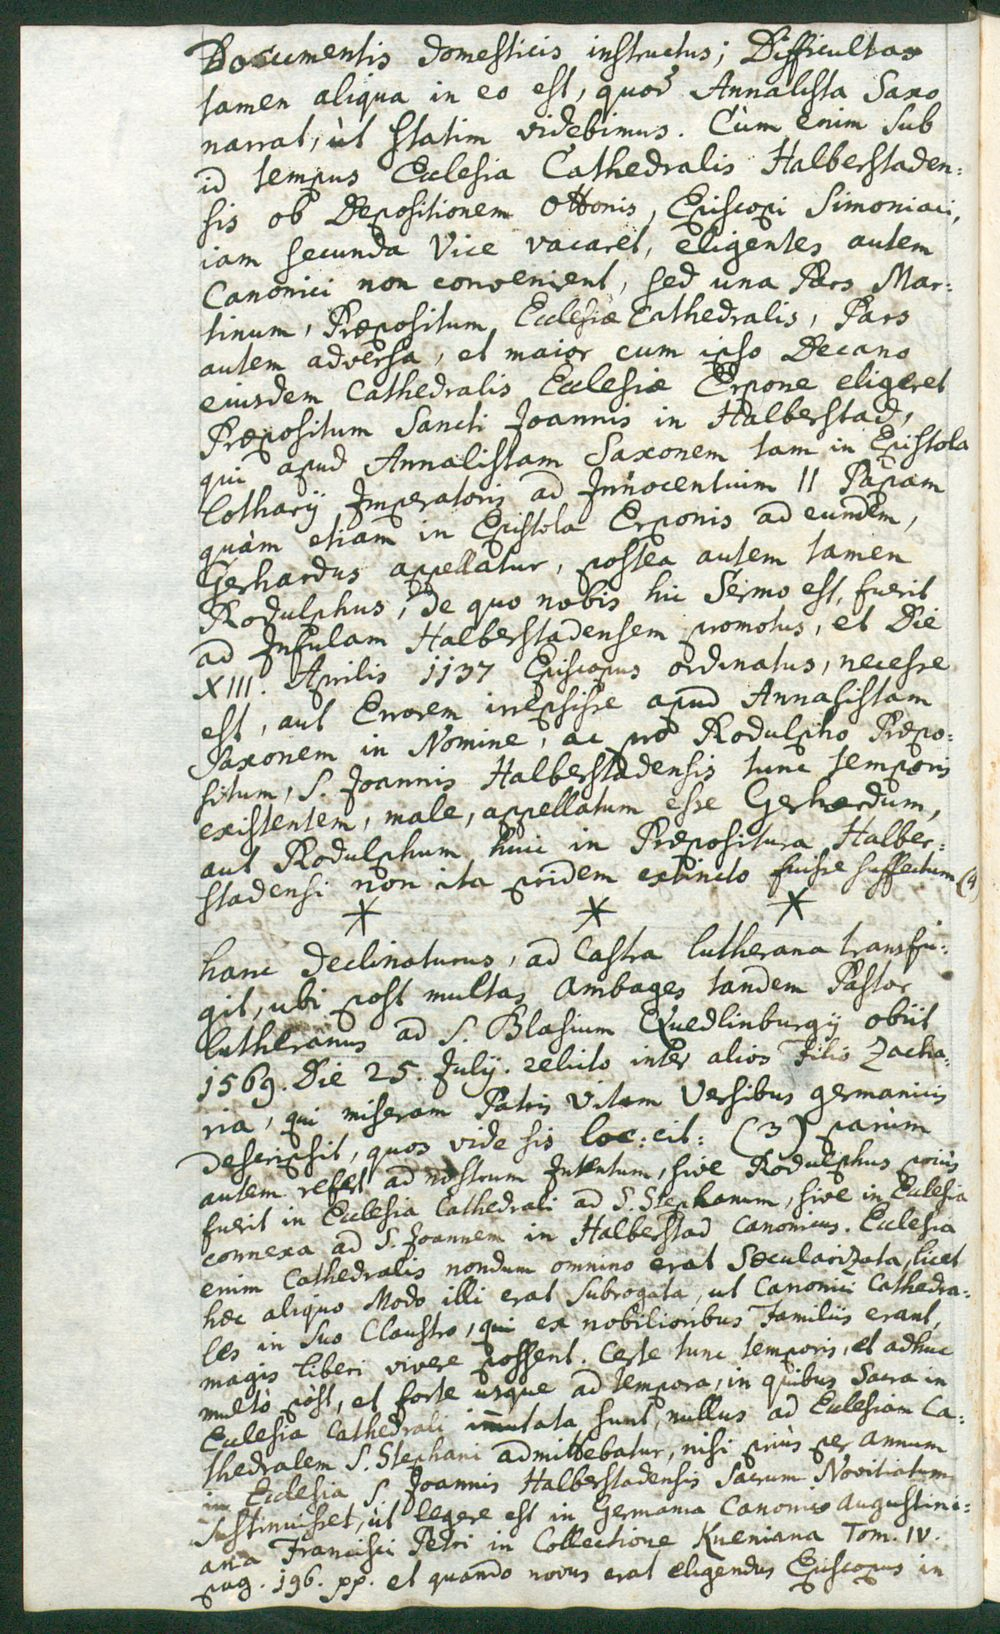 Documentis domesticis instructus; Difficultas
tamen aliqua in eo est, quod Annalista Saxo
narrat, ùt statim videbimus. Cùm enim sub
id tempus Ecclesia Cathedralis Halberstaden:
sis ob Depositionem Ottonis, Episcopi Simoniaci,
iam secunda Vice vacaret, eligentes autem
Canonici non convenient, sed una Pars Mar:
tinum, Præpositum Ecclesiæ Cathedralis, Pars
autem adversa, et maior cum ipso Decano
eiusdem Cathedralis Ecclesiæ Erpone eligeret
Præpositum Sancti Joannis in Halberstad,
qui apud Annalistam Saxonem tam in Epistola
Lotharij Imperatoris ad Innocentium II Papam
quàm etiam in Epistola Erponis ad eumdem,
Gerhardus appellatur, postea autem tamen
Rodulphus, de quo nobis hic Sermo est, fuerit
ad Insulam Halberstadensem promotus, et Die
XIII. Aprilis 1137 Episcopus ordinatus, necesse
est, aut Errorem irrepsisse apud Annalistam
Saxonem in Nomine, ac pro Rodulpho Præpo:
situm, S. Joannis Halberstadensis tunc temporis
existentem, male, appellatum esse Gerhardum,
aut Rodulphum huic in Præpositura Halber:
stadensi non ita pridem extincto fuisse suffectum (4)
* * *
hanc declinaturus, ad Castra lutherana transfu:
git, ubi post multas Ambages tandem Pastor
lutheranus ad S. Blasium Quedlinburgij obiit
1569. Die 25. Julij. relicto inter alios Filio Zacha:
ria, qui miseram Patris Vitam Versibus germanicis
descripsit, quos vide sis loc: cit: (3) parùm
autem refert ad nostrum Intentum, sive Rodulphus priùs
fuerit in Ecclesia Cathedrali ad S. Stephanum, sive in Ecclesia
connexa ad S. Joannem in Halberstad Canonicus. Ecclesia
enim Cathedralis nondum omnino erat Sæcularizata, licet
hæc aliquo Modo illi erat subrogata, ut Canonici Cathedra:
les in suo Claustro, qui ex nobilioribus Familiis erant,
magis liberi vivere possent. Certe tunc temporis, et adhuc
multò pòst, et forte usque ad tempora, in quibus Sacra in
Ecclesia Cathedrali immutata sunt, nullus ad Ecclesiam Ca:
thedralem S. Stephani admittebatur, nisi priùs per annum
in Ecclesia S. Joannis Halberstadensis Sacrum Novitiatum
sustinuisset, ùt legere est in Germania Canonico Augustini:
ana Francisci Petri in Collectione Kueniana Tom. IV.
pag. 196. pp. et quando novus erat eligendus Episcopus in